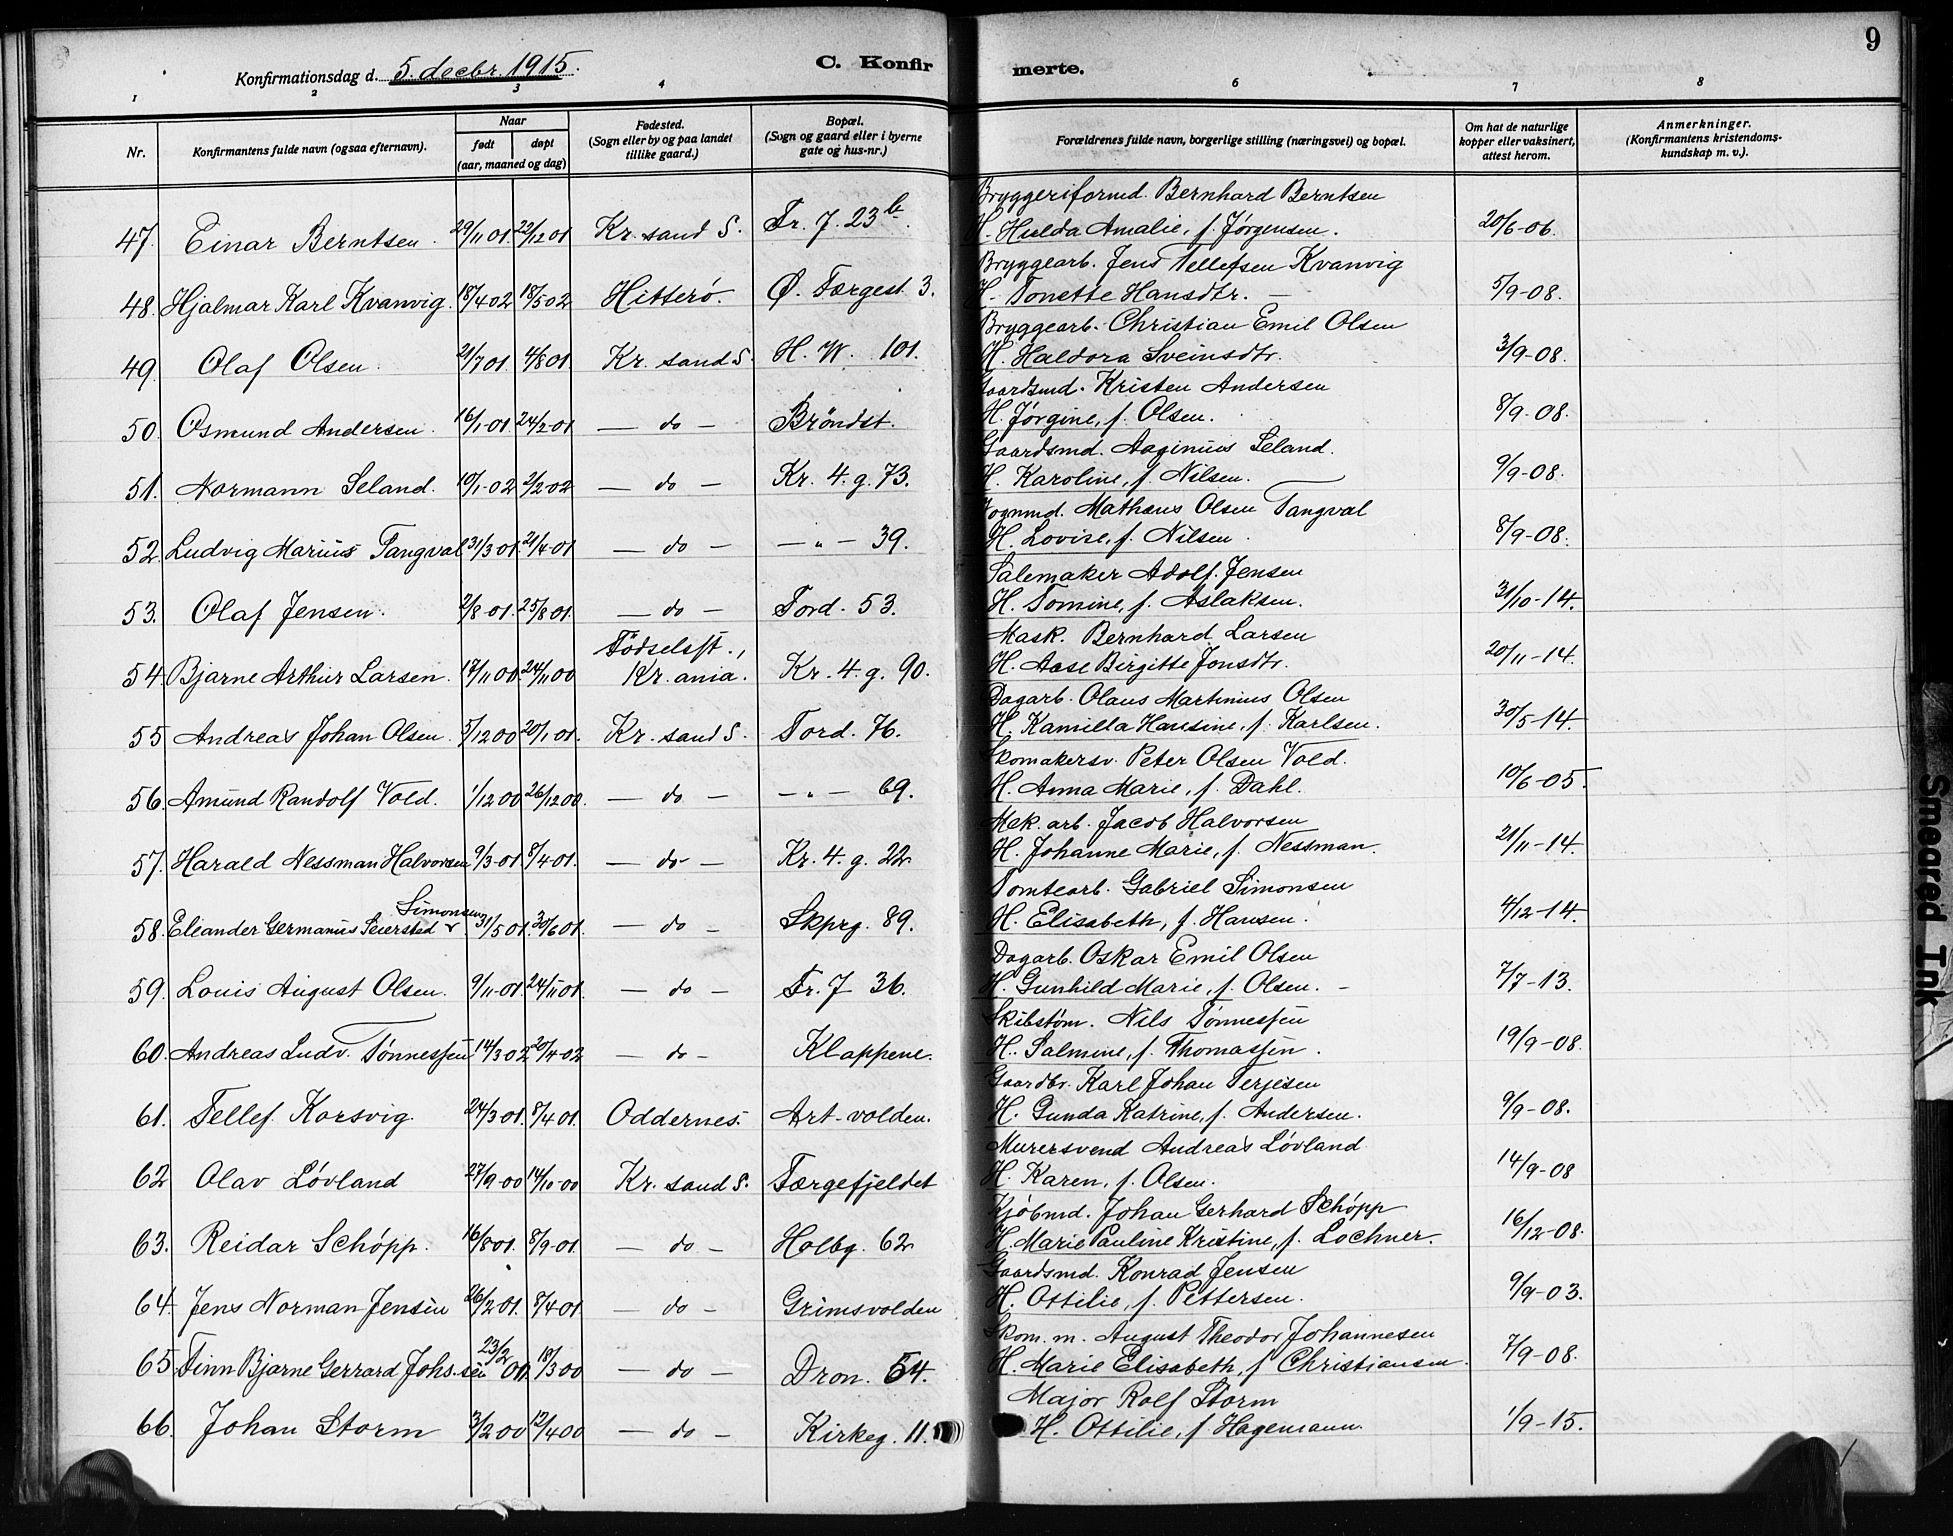 9
Konfirmationsdag d. 5. decbr. 1915.
C. Konfirmerte.
1 2 3 4 5 6 7 8
Nr.
Konfirmantens fulde navn (ogsaa efternavn).
Naar
født
døpt
(aar, maaned og dag)
Fødested.
(Sogn eller by og paa landet
tillike gaard.)
Bopæl.
(Sogn og gaard eller i byerne
gate og hus-nr.)
Forældrenes fulde navn, borgerlige stilling (næringsvei) og bopæl.
Om hat de naturlige
kopper eller vaksinert,
attest herom.
Anmerkninger.
(Konfirmantens kristendoms-
kundskap m. v.).
Bryggeriformd. Bernhard Berntsen
47. Einar Berntsen. 29/11 01 22/12 01 Kr. sand S. Fr. 7. 23b. H. Hulda Amalie, f. Jørgensen. 20/6-06.
Bryggearb. Jens Tellefsen Kvanvig
48. Hjalmar Karl Kvanvig. 18/4 02 18/5 02 Hitterö. Ø. Færgest. 3. H. Tonette Hansdtr. 5/9-08.
Bryggearb. Christian Emil Olsen
49. Olaf Olsen. 21/7 01 4/8 01 Kr. sand S. H. W. 101. H. Haldora Sveinsdtr. 3/9-08.
Gaardsmd. Kristen Andersen
50. Osmund Andersen. 16/1-01 24/2-01 — do — Bröndst. H. Jørgine, f. Olsen. 8/9-08.
Gaardsmd. Aaginius Seland.
51. Normann Seland. 10/1-02 2/2-02 — do — Kr. 4. g. 73. H. Karoline, f. Nilsen. 9/9-08.
Vognmd. Mathæus Olsen Tangval
52. Ludvig Marius Tangval 31/3 01. 21/4-01 — do — — " — 39. H. Lovise, f. Nilsen. 8/9-08.
Salemaker Adolf Jensen
53. Olaf Jensen. 2/8-01. 25/8 01. — do — Tord. 53. H. Tomine, f. Aslaksen. 31/10-14.
Mask. Bernhard Larsen
54. Bjarne Arthur Larsen. 17/11 00. 24/11 00 Födselsst., Kr. ania. Kr. 4. g. 90. H. Aase Birgitte Jonsdtr. 20/11-14.
Dagarb. Olaus Martinius Olsen
55 Andreas Johan Olsen. 5/12 00 20/1 01. Kr. sand S. Tord. 76. H. Kamilla Hansine, f. Karlsen. 30/5-14.
Skomakersv. Peter Olsen Vold.
56. Amund Randolf Vold. 1/12 00 26/12 00. — do — — " — 69. H. Anna Marie, f. Dahl. 10/6-05.
Mek. arb. Jacob Halvorsen
57. Harald Nessman Halvorsen 9/3-01 8/4-01. — do — Kr. 4. g. 22 H. Johanne Marie, f. Nessman 21/11-14.
Tomtearb. Gabriel Simonsen
58. Eleander Germanius Seiersted Simonsen 31/5 01. 30/6 01. — do — Skprg. 89. H. Elisabeth, f. Hansen. 4/12-14.
Dagarb. Oskar Emil Olsen
59. Louis August Olsen. 9/11-01. 24/11 01. — do — Fr. 7 36. H. Gunhild Marie, f. Olsen. 7/7-13.
Skibstøm. Nils Tønnessen
60. Andreas Ludv. Tønnessen 14/3 02 20/4-02 — do — Klappene. H. Salmine, f. Thomassen. 19/9-08.
Gaardbr. Karl Johan Terjesen
61. Tellef Korsvig. 24/3 01. 8/4 01. Oddernes. Art-volden. H. Gunda Katrine, f. Andersen. 9/9-08.
Murersvend Andreas Løvland
62 Olav Løvland 27/9-00 14/10-00 Kr. sand S. Færgefjeldet H. Karen, f. Olsen. 14/9-08
Kjøbmd. Johan Gerhard Schøpp
63. Reidar Schøpp. 16/8 01. 8/9-01 — do — Holbg. 62 H. Marie Pauline Kristine, f. Lochner. 16/12-08.
Gaardsmd. Konrad Jensen
64. Jens Norman Jensen 26/2 01. 8/4 01 — do — Grimsvolden H. Ottilie, f. Pettersen. 9/9-03.
Skom. m. August Theodor Johannesen
65. Finn Bjarne Gerrard Johs.sen 23/2 00. 18/3 00 — do — Dron. 54. H. Marie Elisabeth, f. Christiansen. 7/9-08.
Major Rolf Storm
66. Johan Storm 3/2 00 12/4 00 — do — Kirkeg. 11. H. Ottilie, f. Hagemann. 1/9-15.
Smeared Ink